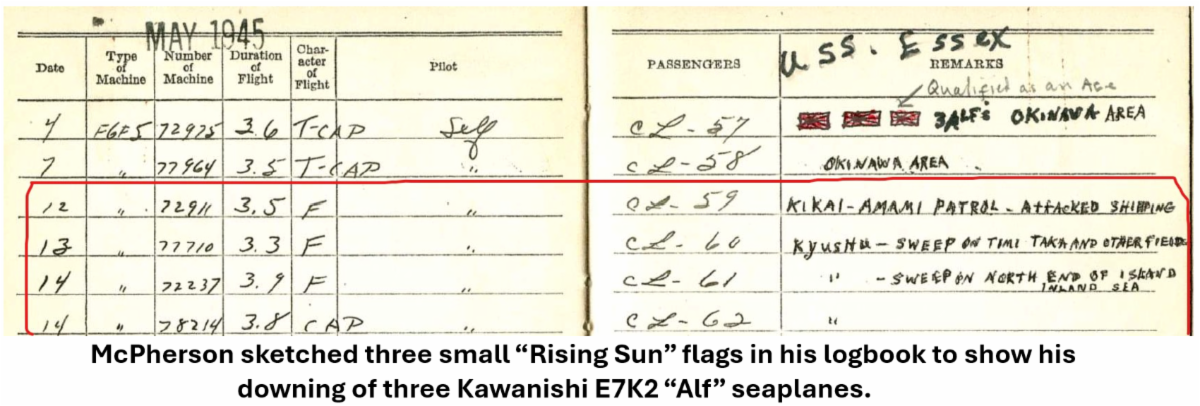 MAY 1945
USS. Essex
Date Type of Machine Number of Machine Duration of Flight Char-acter of Flight Pilot PASSENGERS REMARKS
Qualified as an Ace
4 F6F5 72975 3.6 T-CAP Self CL-57 3 ALF's OKINAWA AREA
7 " 77964 3.5 T-CAP " CL-58 OKINAWA AREA
12 " 72911 3.5 F " CL-59 KIKAI-AMAMI PATROL - ATTACKED SHIPPING
13 " 77710 3.3 F " CL-60 Kyushu - SWEEP ON TIMI TAKA AND OTHER FIELDS
14 " 72237 3.9 F " CL-61 " - SWEEP ON NORTH END OF ISLAND
INLAND SEA
14 " 78214 3.8 CAP " CL-62 "
McPherson sketched three small “Rising Sun” flags in his logbook to show his
downing of three Kawanishi E7K2 “Alf” seaplanes.